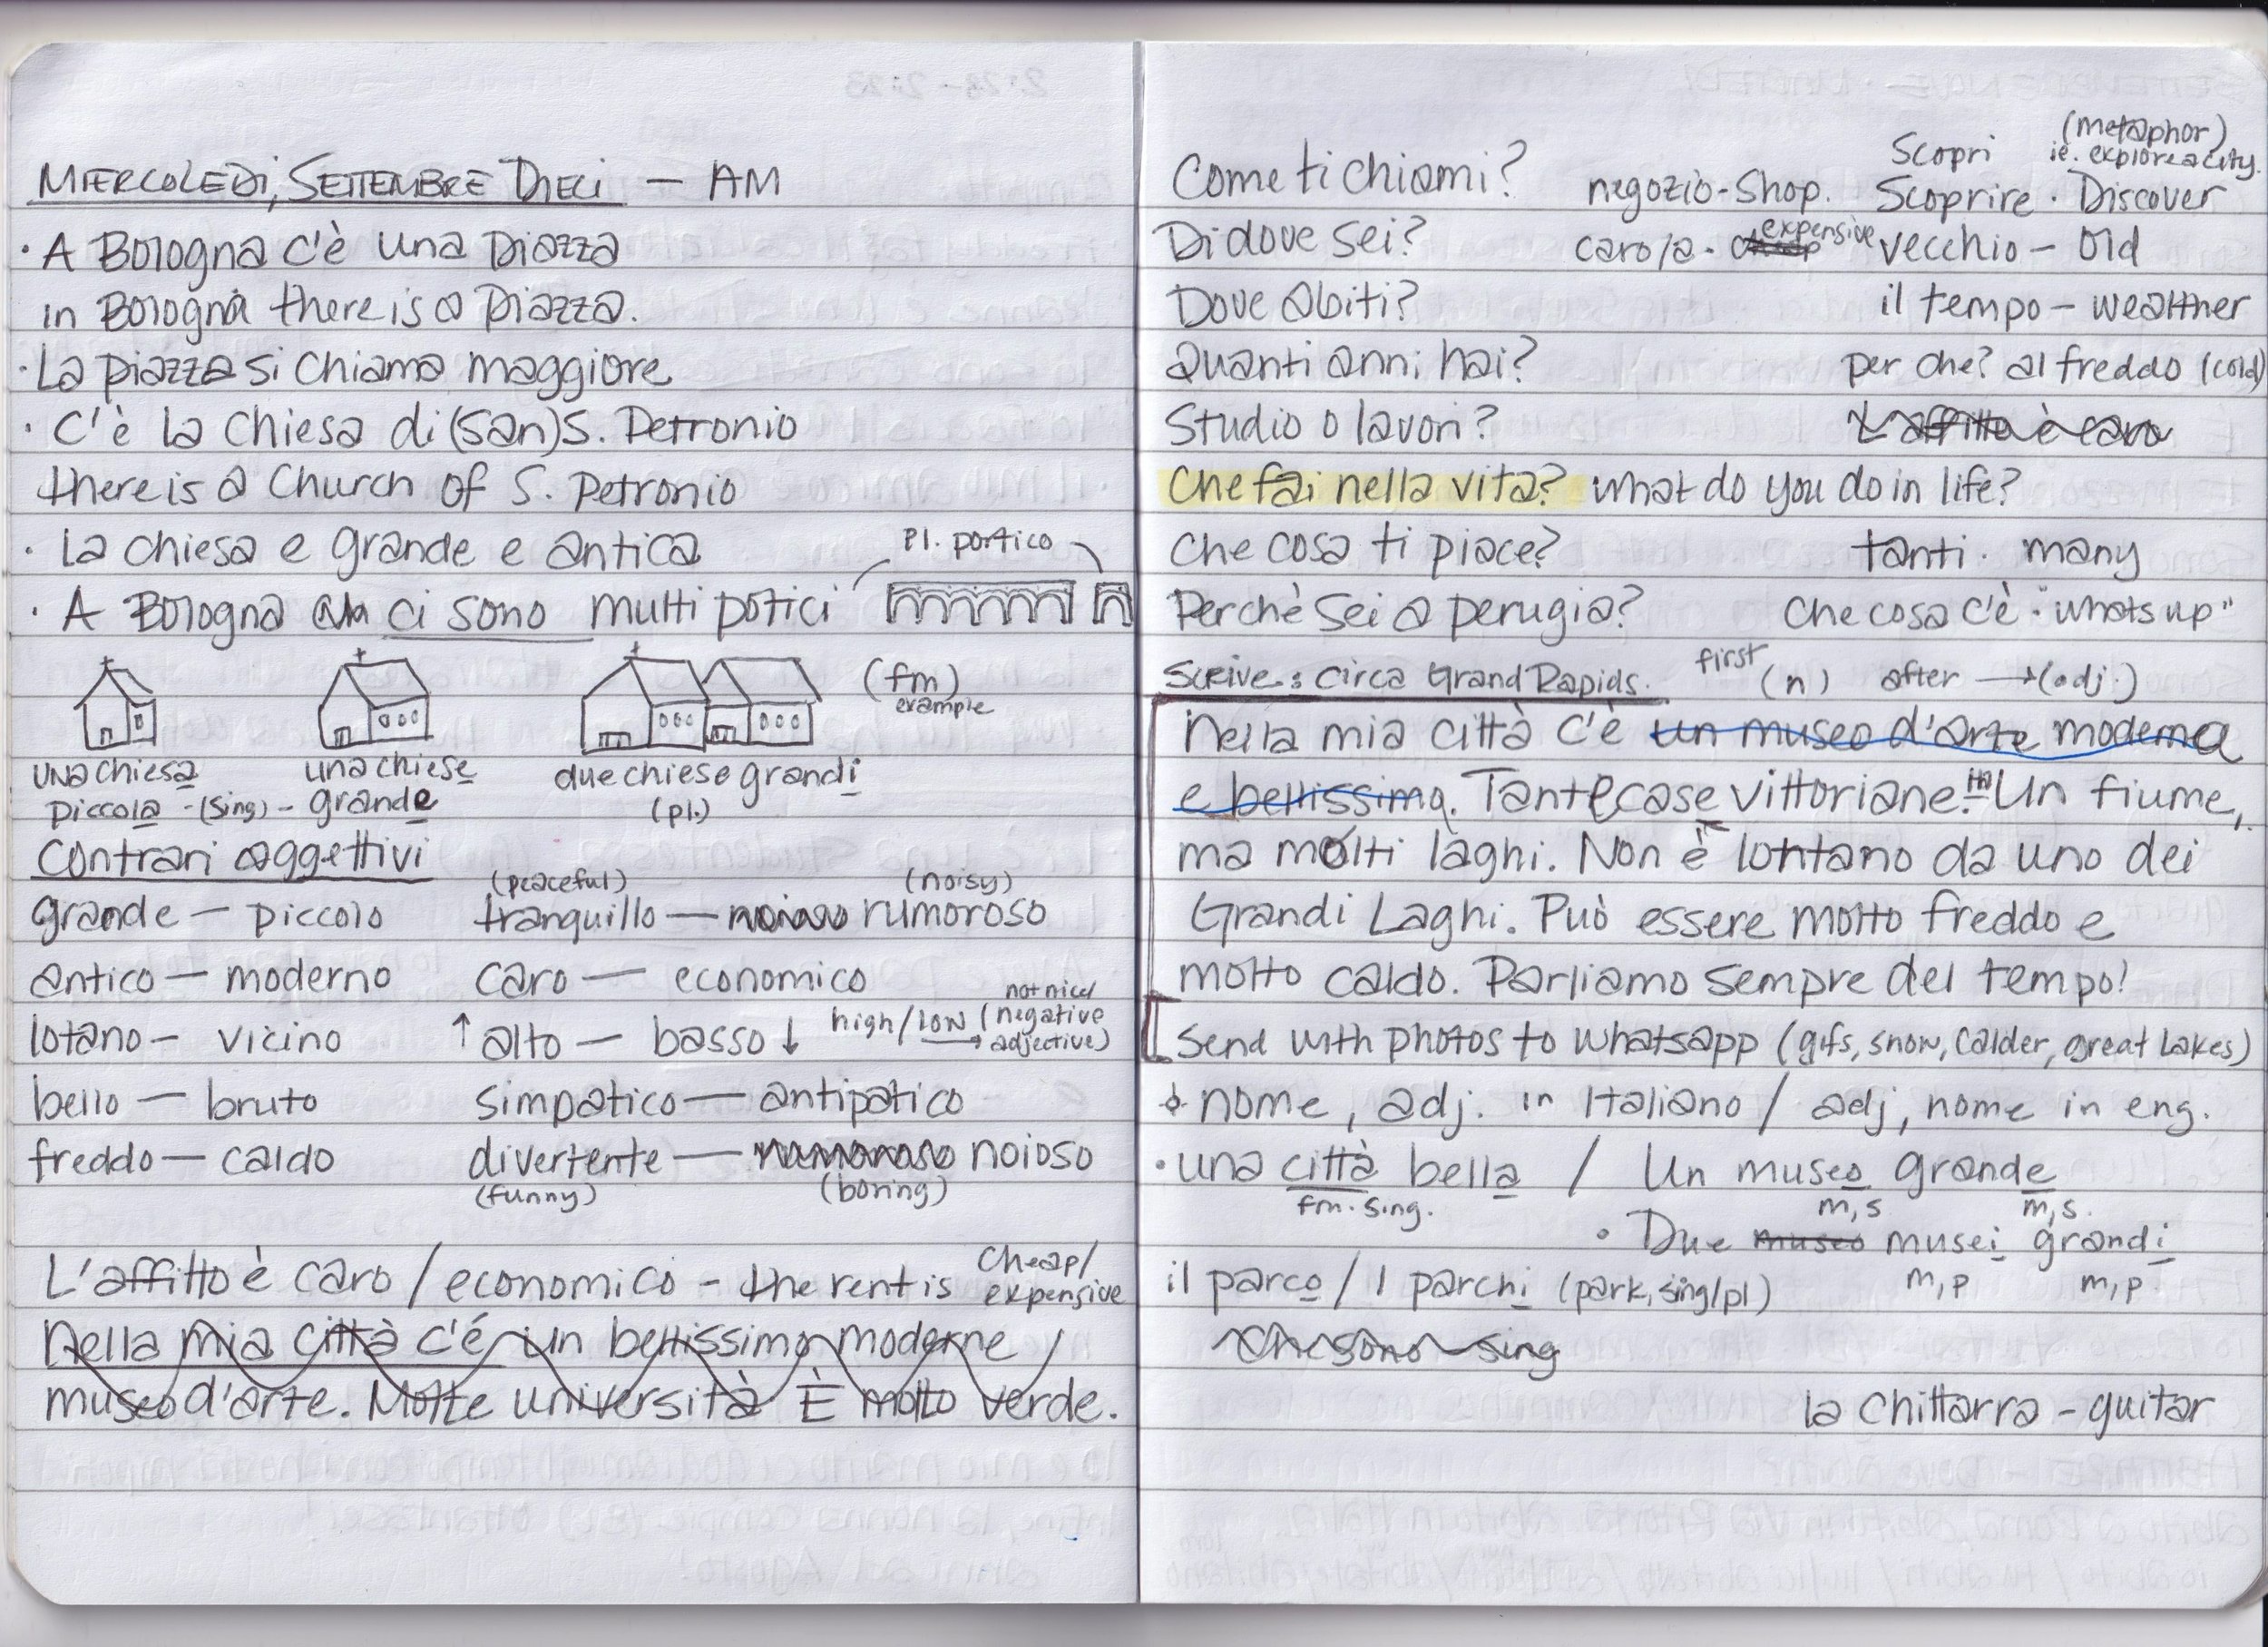 MIERCOLEDI, SETTEMBRE DIECI — AM
· A Bologna c'è una piazza
in Bologna there is a piazza.
· La piazza si chiama maggiore
· C'è la chiesa di (San) S. Petronio
there is a Church of S. Petronio
· La chiesa e grande e antica
Pl. portico
· A Bologna ci sono multi potici
(fm)
example
una chiesa una chiese due chiese grandi
piccola - (sing) - grande (pl.)
Contrari aggettivi
(peaceful) (noisy)
grande — piccolo tranquillo — noioso rumoroso
antico — moderno caro — economico
lotano — vicino ↑ alto — basso ↓ high/low (not nice/ negative adjective)
bello — bruto simpatico — antipatico
freddo — caldo divertente — rumoroso noioso
(funny) (boring)
L'affitto è caro / economico - the rent is cheap/ expensive
Nella mia città c'é un bellissimo moderne
museo d'arte. Molte università È molto verde.
Scopri (metaphor)
ie. explore a city.
Come ti chiami? negozio - shop. Scoprire · Discover
Di dove sei? caro/a · cheap expensive vecchio — old
Dove abiti? il tempo — weather
Quanti anni hai? per che? al freddo (cold)
Studio o lavori? L'affitto è caro
Che fai nella vita? what do you do in life?
Che cosa ti piace? tanti · many
Perchè sei a perugia? Che cosa c'è · "whats up"
Scrive: circa Grand Rapids. first (n) after → (adj.)
Nella mia città c'è un museo d'arte moderna
e bellissima. Tante case vittoriane. Un fiume,
ma molti laghi. Non è lontano da uno dei
Grandi Laghi. Può essere molto freddo e
molto caldo. Parliamo sempre del tempo!
Send with photos to whatsapp (gifs, snow, Calder, great lakes)
nome, adj. in Italiano / adj, nome in eng.
· una città bella / Un museo grande
fm. sing. m, s m, s.
· Due museo musei grandi
m, p m, p.
il parco / I parchi (park, sing/pl)
Che sono sing
la chittarra - guitar